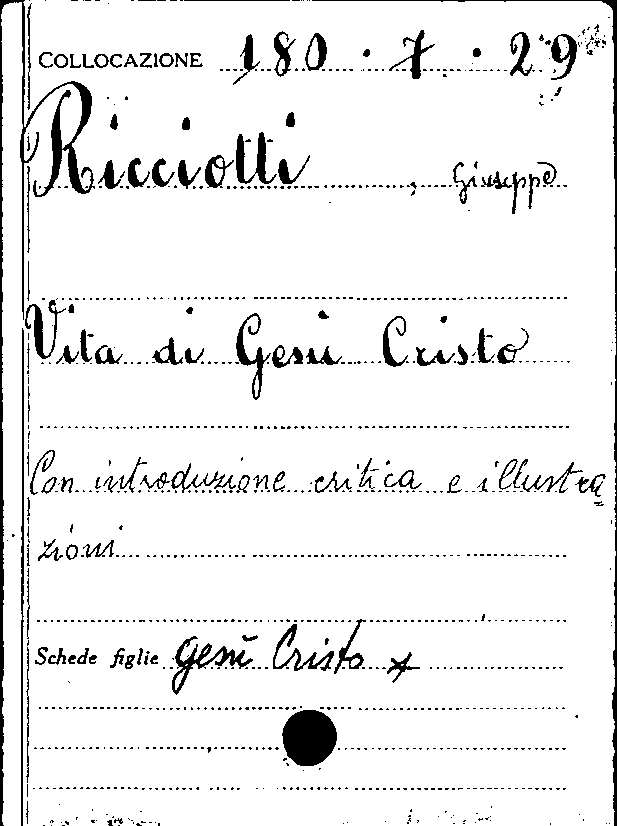 COLLOCAZIONE 180 · 7 · 29
Ricciotti, Giuseppe
Vita di Gesù Cristo
Con introduzione critica e illustra
zioni
Schede figlie Gesù Cristo